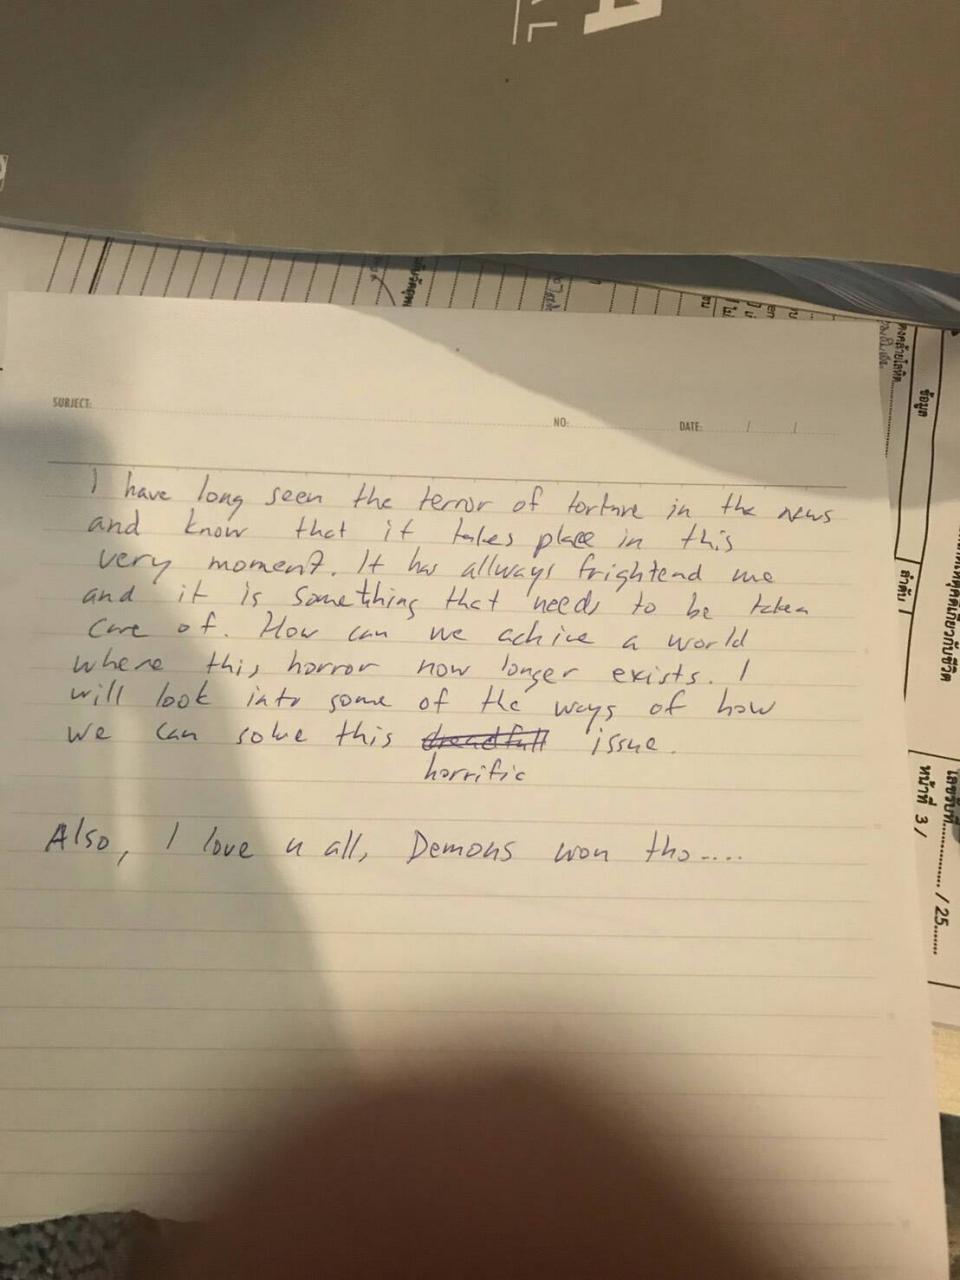 AL
SUBJECT:
NO:
DATE: / /
I have long seen the terror of torture in the news
and know that it takes place in this
very moment. It has allways frightend me
and it is something that needs to be taken
care of. How can we achive a world
where this horror now longer exists. I
will look into some of the ways of how
we can solve this dreadfull issue.
horrific
Also, I love u all, Demons won tho....
ข้อมูล
ลำดับ
หน้าที่ 3 /
/ 25